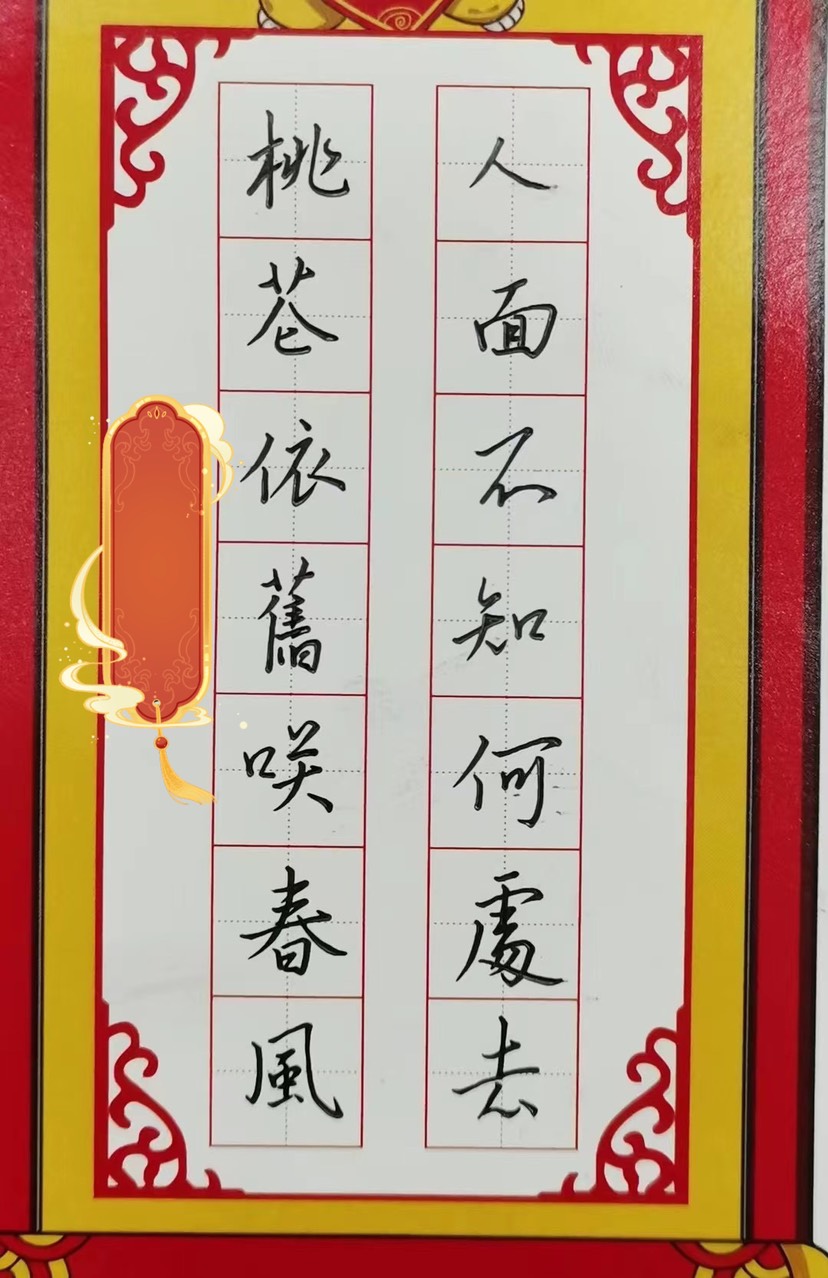 人面不知何處去
桃花依舊咲春風